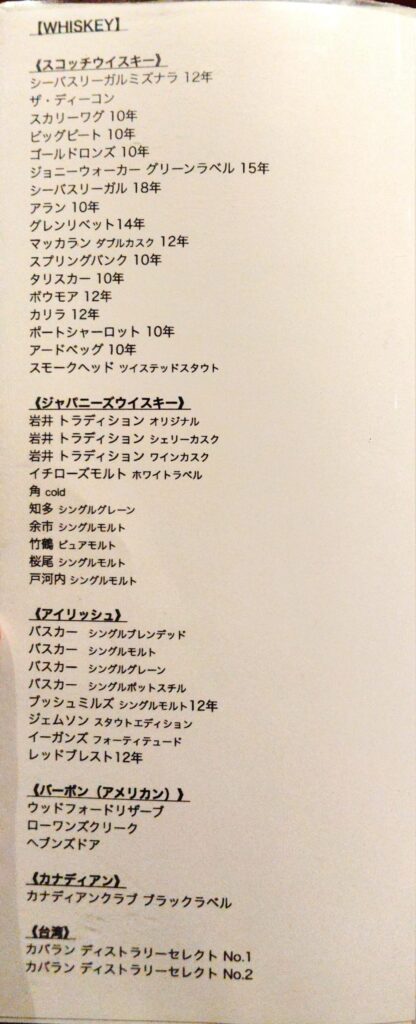 【WHISKEY】
《スコッチウイスキー》
シーバスリーガルミズナラ 12年
ザ・ディーコン
スカリーワグ 10年
ビッグピート 10年
ゴールドロンズ 10年
ジョニーウォーカー グリーンラベル 15年
シーバスリーガル 18年
アラン 10年
グレンリベット14年
マッカラン ダブルカスク 12年
スプリングバンク 10年
タリスカー 10年
ボウモア 12年
カリラ 12年
ポートシャーロット 10年
アードベッグ 10年
スモークヘッド ツイステッドスタウト
《ジャパニーズウイスキー》
岩井 トラディション オリジナル
岩井 トラディション シェリーカスク
岩井 トラディション ワインカスク
イチローズモルト ホワイトラベル
角 cold
知多 シングルグレーン
余市 シングルモルト
竹鶴 ピュアモルト
桜尾 シングルモルト
戸河内 シングルモルト
《アイリッシュ》
バスカー シングルブレンデッド
バスカー シングルモルト
バスカー シングルグレーン
バスカー シングルポットスチル
ブッシュミルズ シングルモルト12年
ジェムソン スタウトエディション
イーガンズ フォーティテュード
レッドブレスト12年
《バーボン（アメリカン）》
ウッドフォードリザーブ
ローワンズクリーク
ヘブンズドア
《カナディアン》
カナディアンクラブ ブラックラベル
《台湾》
カバラン ディストラリーセレクト No.1
カバラン ディストラリーセレクト No.2